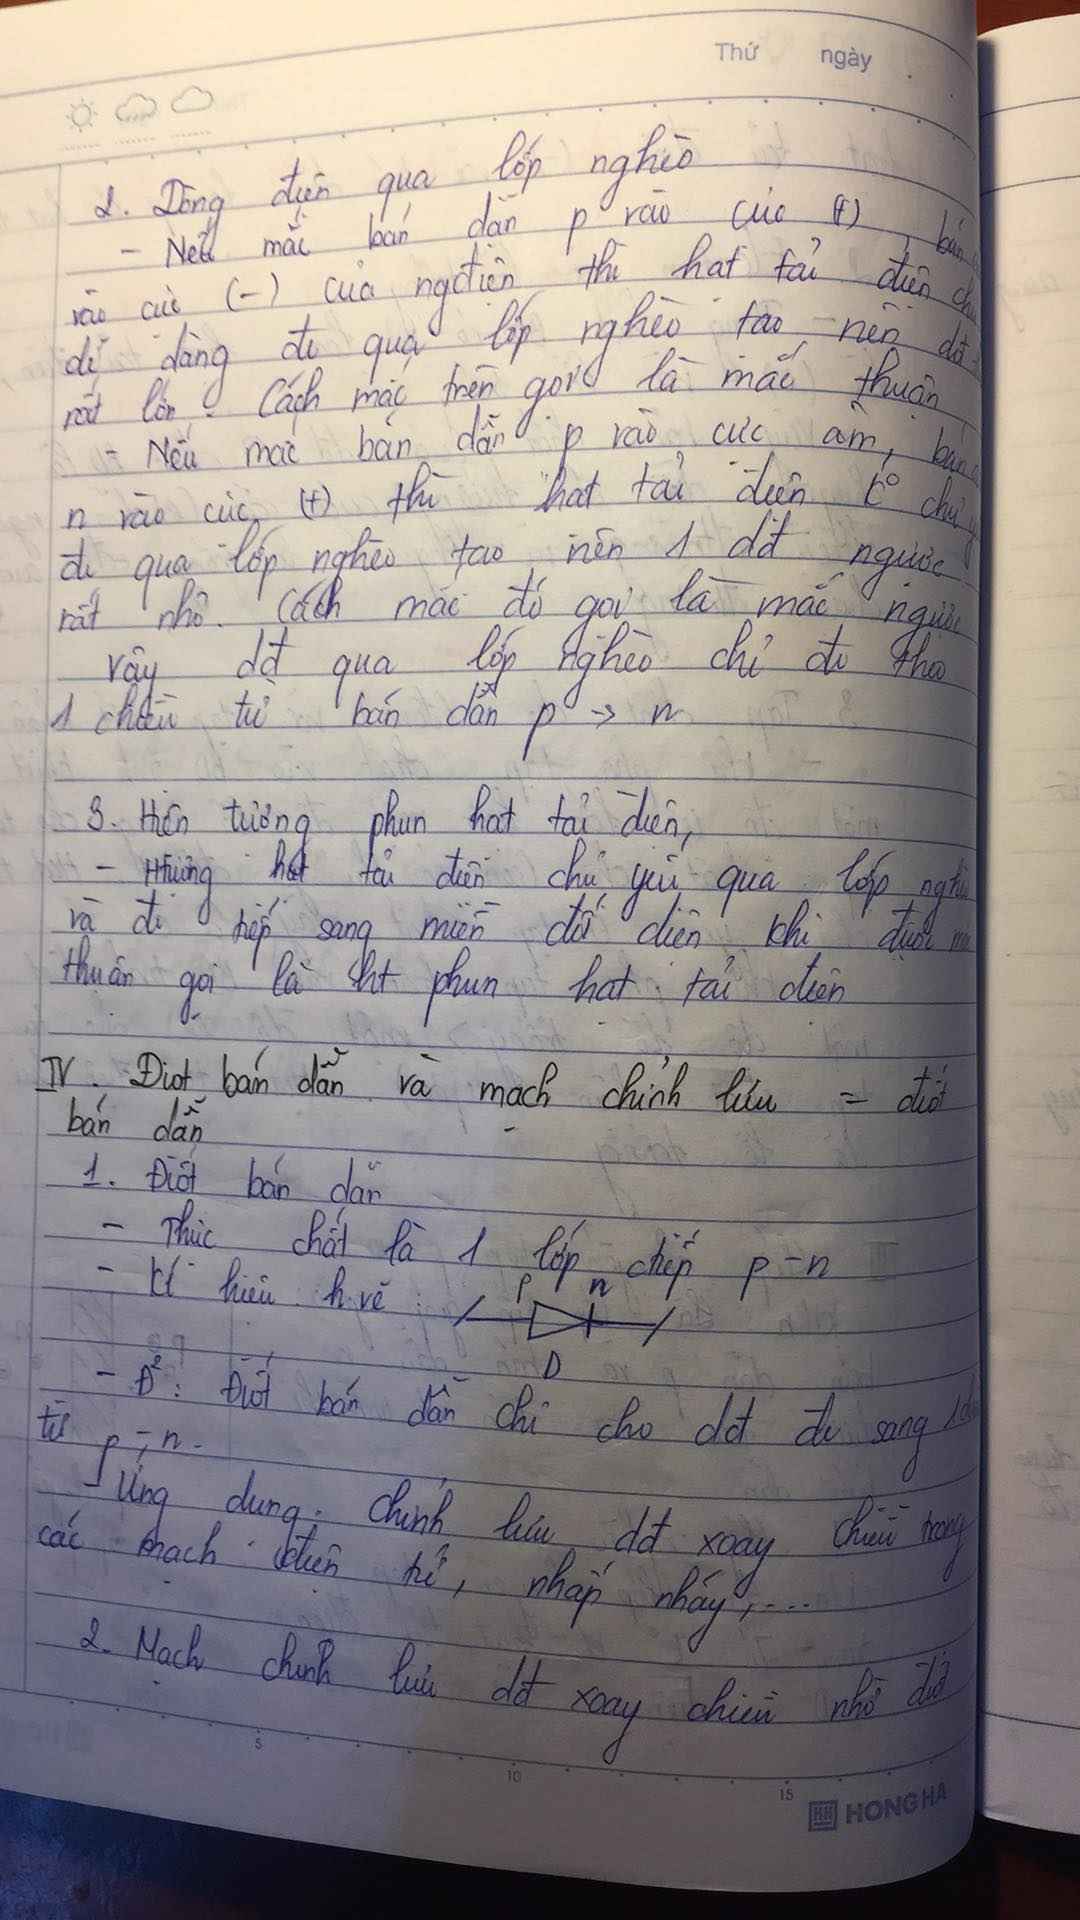 Thứ ngày
2. Dòng điện qua lớp nghèo
- Nếu mắc bán dẫn p vào cực (+), bán
vào cực (-) của ngđiện thì hạt tải điện ch
dễ dàng đi qua lớp nghèo tạo nên dđ
rất lớn. Cách mắc trên gọi là mắc thuận
- Nếu mắc bán dẫn p vào cực âm, bán
n vào cực (+) thì hạt tải điện k° chủ y
đi qua lớp nghèo tạo nên 1 dđ ngược
rất nhỏ. Cách mắc đó gọi là mắc ngược
Vậy dđ qua lớp nghèo chỉ đi theo
1 chiều từ bán dẫn p → n
3. Hiện tượng phun hạt tải điện,
- Htượng hạt tải điện chủ yếu qua lớp nghè
và đi tiếp sang miền đối diện khi được m
thuận gọi là ht phun hạt tải điện
IV. Điot bán dẫn và mạch chỉnh lưu = điốt
bán dẫn
1. Điốt bán dẫn
- Thực chất là 1 lớp chiếp p-n
- Kí hiệu h.vẽ:
p n
D
- Đ²: Điốt bán dẫn chỉ cho dđ đi sang 1
từ p → n.
Ứng dụng: Chỉnh lưu dđ xoay chiều trong
các mạch điện tử, nhấp nháy,....
2. Mạch chỉnh lưu dđ xoay chiều nhờ điố
5 10 15
HH HONG HA